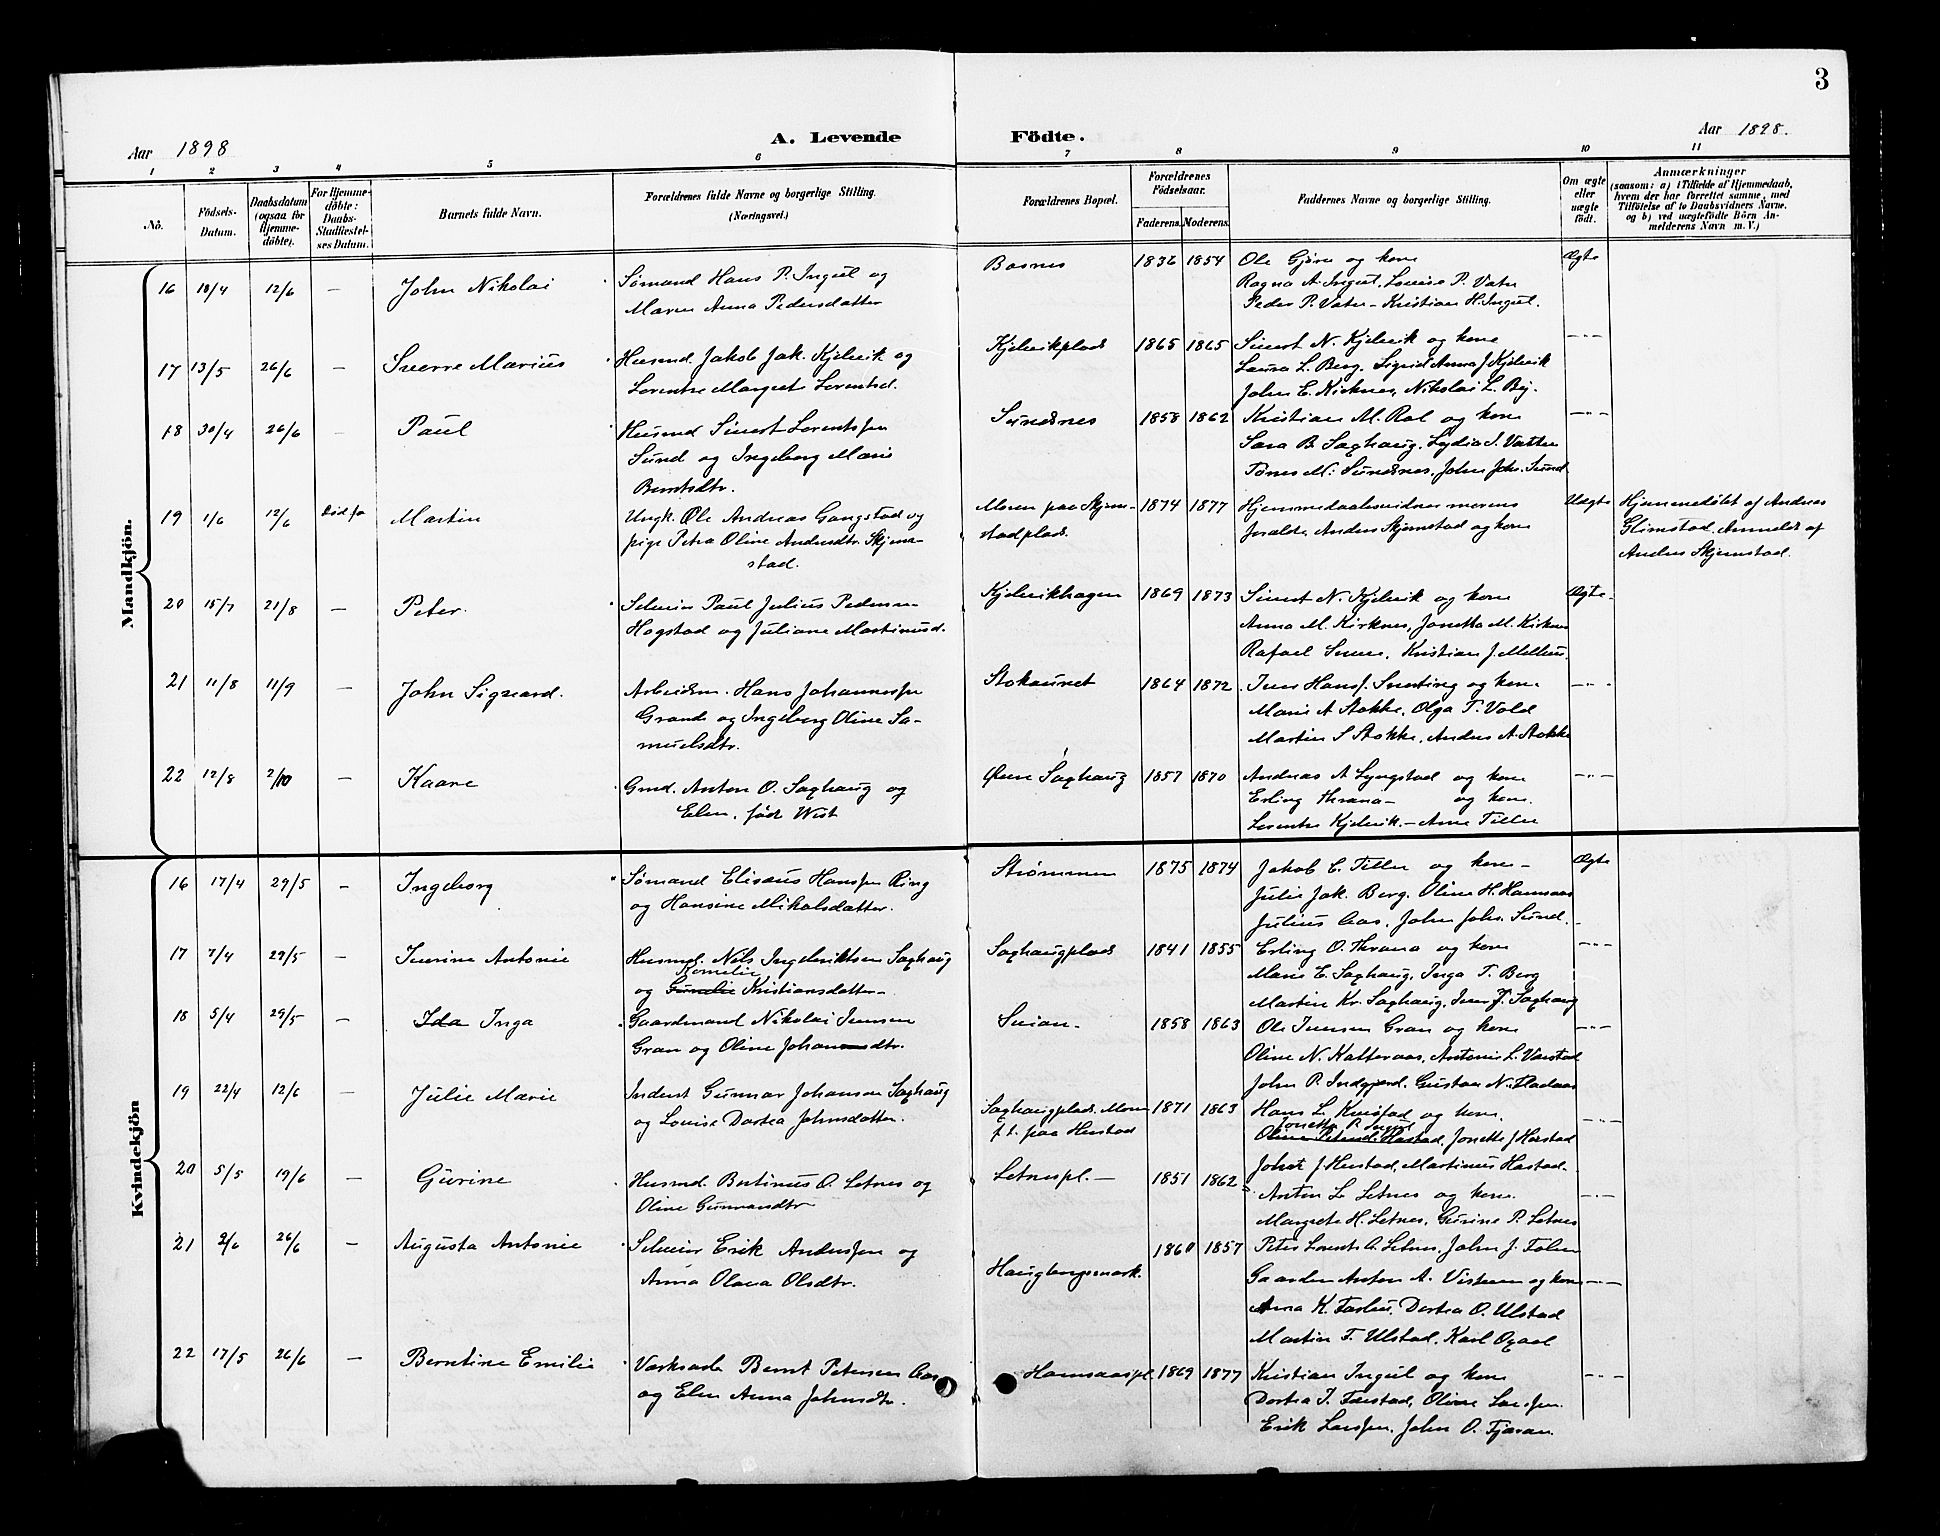 3
Aar 1898
A. Levende Födte.
Aar 1898.
1 2 3 4 5 6 7 8 9 10 11
No.
Födsels-Datum.
Daabsdatum (ogsaa for Hjemme-döbte).
For Hjemme-döbte: Daabs-Stadfæstelses Datum.
Barnets fulde Navn.
Forældrenes fulde Navne og borgerlige Stilling.
(Næringsvei.)
Forældrenes Bopæl.
Forældrenes Födselsaar.
Faderens. Moderens.
Faddernes Navne og borgerlige Stilling.
Om ægte eller uægte født.
Anmærkninger
(saasom: a) i Tilfælde af Hjemmedaab,
hvem der har forrettet samme, med
Tilföielse af to Daabsvidners Navne,
og b) ved uægtefödte Börn An-
melderens Navn m. V.)
Mandkjön.
16 18/4 12/6 — John Nikolai Sømand Hans P. Ingul og Bosnes 1836 1854 Ole Gjøru og kone Ægte
Maren Anna Pedersdatter Ragna A. Ingul, Louise P. Vatn
Peder P. Vatn – Kristian H. Ingul.
17 13/5 26/6 — Sverre Marius Husmd. Jakob Jak. Kjelvik og Kjelvikplads 1865 1865 Sivert N. Kjelvik og kone —"—
Lorentse Margrete Lorentsd. Laura L. Berg. Sigrid Anna J. Kjelvik
John E. Kirknes, Nikolai L. Bg.
18 30/4 26/6 — Paul Husmd Sivert Lorentsen Sundsnes 1858 1862 Kristian M. Rol og kone —"—
Sund og Ingeborg Marie Sara B. Saghaug, Lydia I. Vatn
Berntsdtr. Tønes M. Sundsnes, John Joh. Sund
19 1/6 12/6 Martin Ungk. Ole Andreas Gangstad og Moren paa Skjem- 1874 1877 Hjemmedaabsvidner morens Uægte Hjemmedøbt af Andreas
pige Petra Oline Andersdtr. Skjem- stadplads. foreldre Anders Skjemstad og kone Glimstad. Anmeldt af
stad. Anders Skjemstad.
20 15/7 21/8 — Peter Selveier Paul Julius Pedersen Kjelvikhagen 1869 1873 Sivert N. Kjelvik og kone Ægte.
Hogstad og Juliane Martinusd. Anna M. Kirknes, Jonetta M. Kirknes
Rafael , Kristian J. Melhus.
21 11/8 11/9 — John Sigvard. Arbeidsm. Hans Johannessen Stokaunet 1864 1872 Iver Hansf. Snerting og kone —"—
Grande og Ingeborg Oline Sa- Marie A Stokke, Olga T. Vold
muelsdtr. Martin S Stokke, Anders A. Stokke
22 12/8 2/10 — Kaare Gmd. Anton O. Saghaug og Øvre Saghaug 1857 1870 Andreas A Lyngstad og kone —"—
Elen, født Wist Erling Thrana – og kone.
Lorents Kjelvik. – Arne Tiller
Kvindekjön
16 17/4 29/5 — Ingeborg Sømand Elisæus Hansen Ring Strømmen 1875 1874 Jakob E. Tiller og kone – Ægte
og Hansine Mikalsdatter. Julie Jak. Berg. Oline H. Hamsaas
Julius Aas, John Joh. Sund.
17 7/4 29/5 — Iverine Antonie Husmd. Nils Ingebriktsen Saghaug Saghaugplads 1841 1855 Erling O. Thrana og kone —"—
Kornelie
og Kristiansdatter – Marie E. Saghaug, Inga T. Berg
Martin Kr. Saghaug, Iver J. Saghaug
18 5/4 29/5 — Ida Inga Gaardmand Nikolai Iversen 1858 1863 Ole Iversen Gran og kone —"—
Gran og Oline Johansdtr. Oline N. Kalteraas, Antonie L. Varstad
John P. Indgjerd. Gustav N. Fladaas
19 22/4 12/6 — Julie Marie Inderst Gunnar Johansen Saghaug Saghaugplads. Moren 1871 1863 Hans L. Kvistad og kone. —"—
og Louise Dortea Johnsdatter. f.t. paa Hustad Jonetta P. Ingul
Jonette J Hustad
Johan J. Hustad, Martinus Hustad.
20 5/5 19/6 — Gurine Husmd. Bertinus O. Letnes og Letnespl. — 1851 1862 Anton L. Letnes og kone. —"—
Oline Gunvandtr Margrete H. Letnes, Gurine P. Letnes
Peter Lorents A. Letnes, John J. Folen
21 2/6 26/6 — Augusta Antonie Selveier Erik Andersen og Haugbergsmark. 1860 1857 Gaarden Anton A. Vistven og kone —"—
Anna Olava Olsdtr. Anna K. Forbu, Dortea O. Ulstad
Martin T. Ulstad, Karl Opaal
22 17/5 26/6 — Berntine Emilie Værksarb Bernt Petersen Aas Hamsaaspl 1869 1877 Kristian Ingul og kone —"—
og Elen Anna Johnsdtr. Dortea I. Farstad, Oline Larsen.
Erik Larsen, John O. Tjaran.